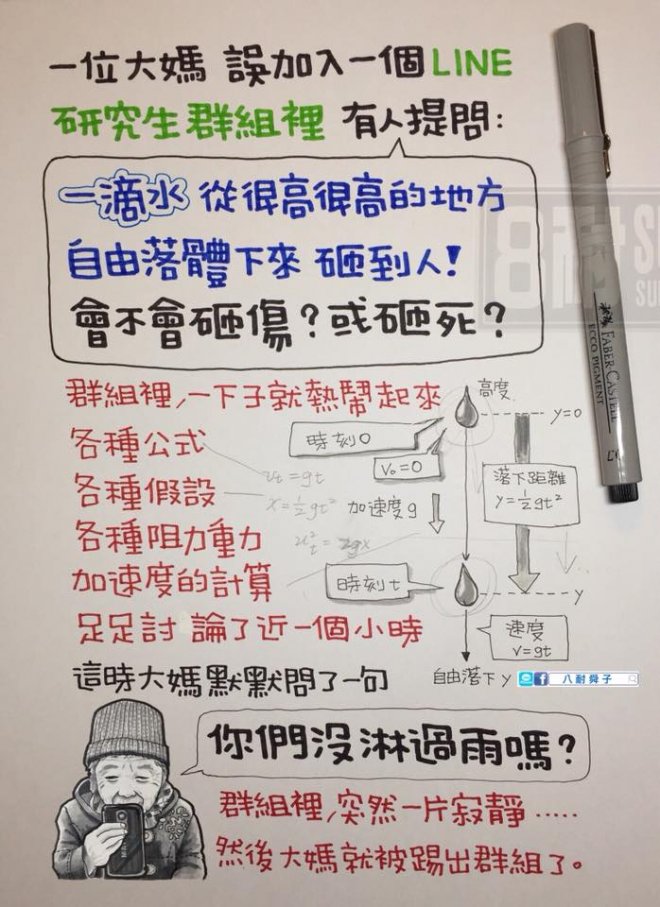 一位大媽 誤加入一個LINE
研究生群組裡 有人提問:
一滴水 從很高很高的地方
自由落體下來 砸到人!
會不會砸傷?或砸死?
群組裡,一下子就熱鬧起來
各種公式
各種假設
各種阻力重力
加速度的計算
足足討論了近一個小時
高度
y=0
時刻0
V₀=0
vt=gt
x=½gt²
加速度g
落下距離
y=½gt²
時刻t
y
速度
v=gt
自由落下 y
八耐舜子
這時大媽默默問了一句
你們沒淋過雨嗎?
群組裡,突然一片寂靜.....
然後大媽就被踢出群組了。
FABER-CASTELL
ECCO PIGMENT